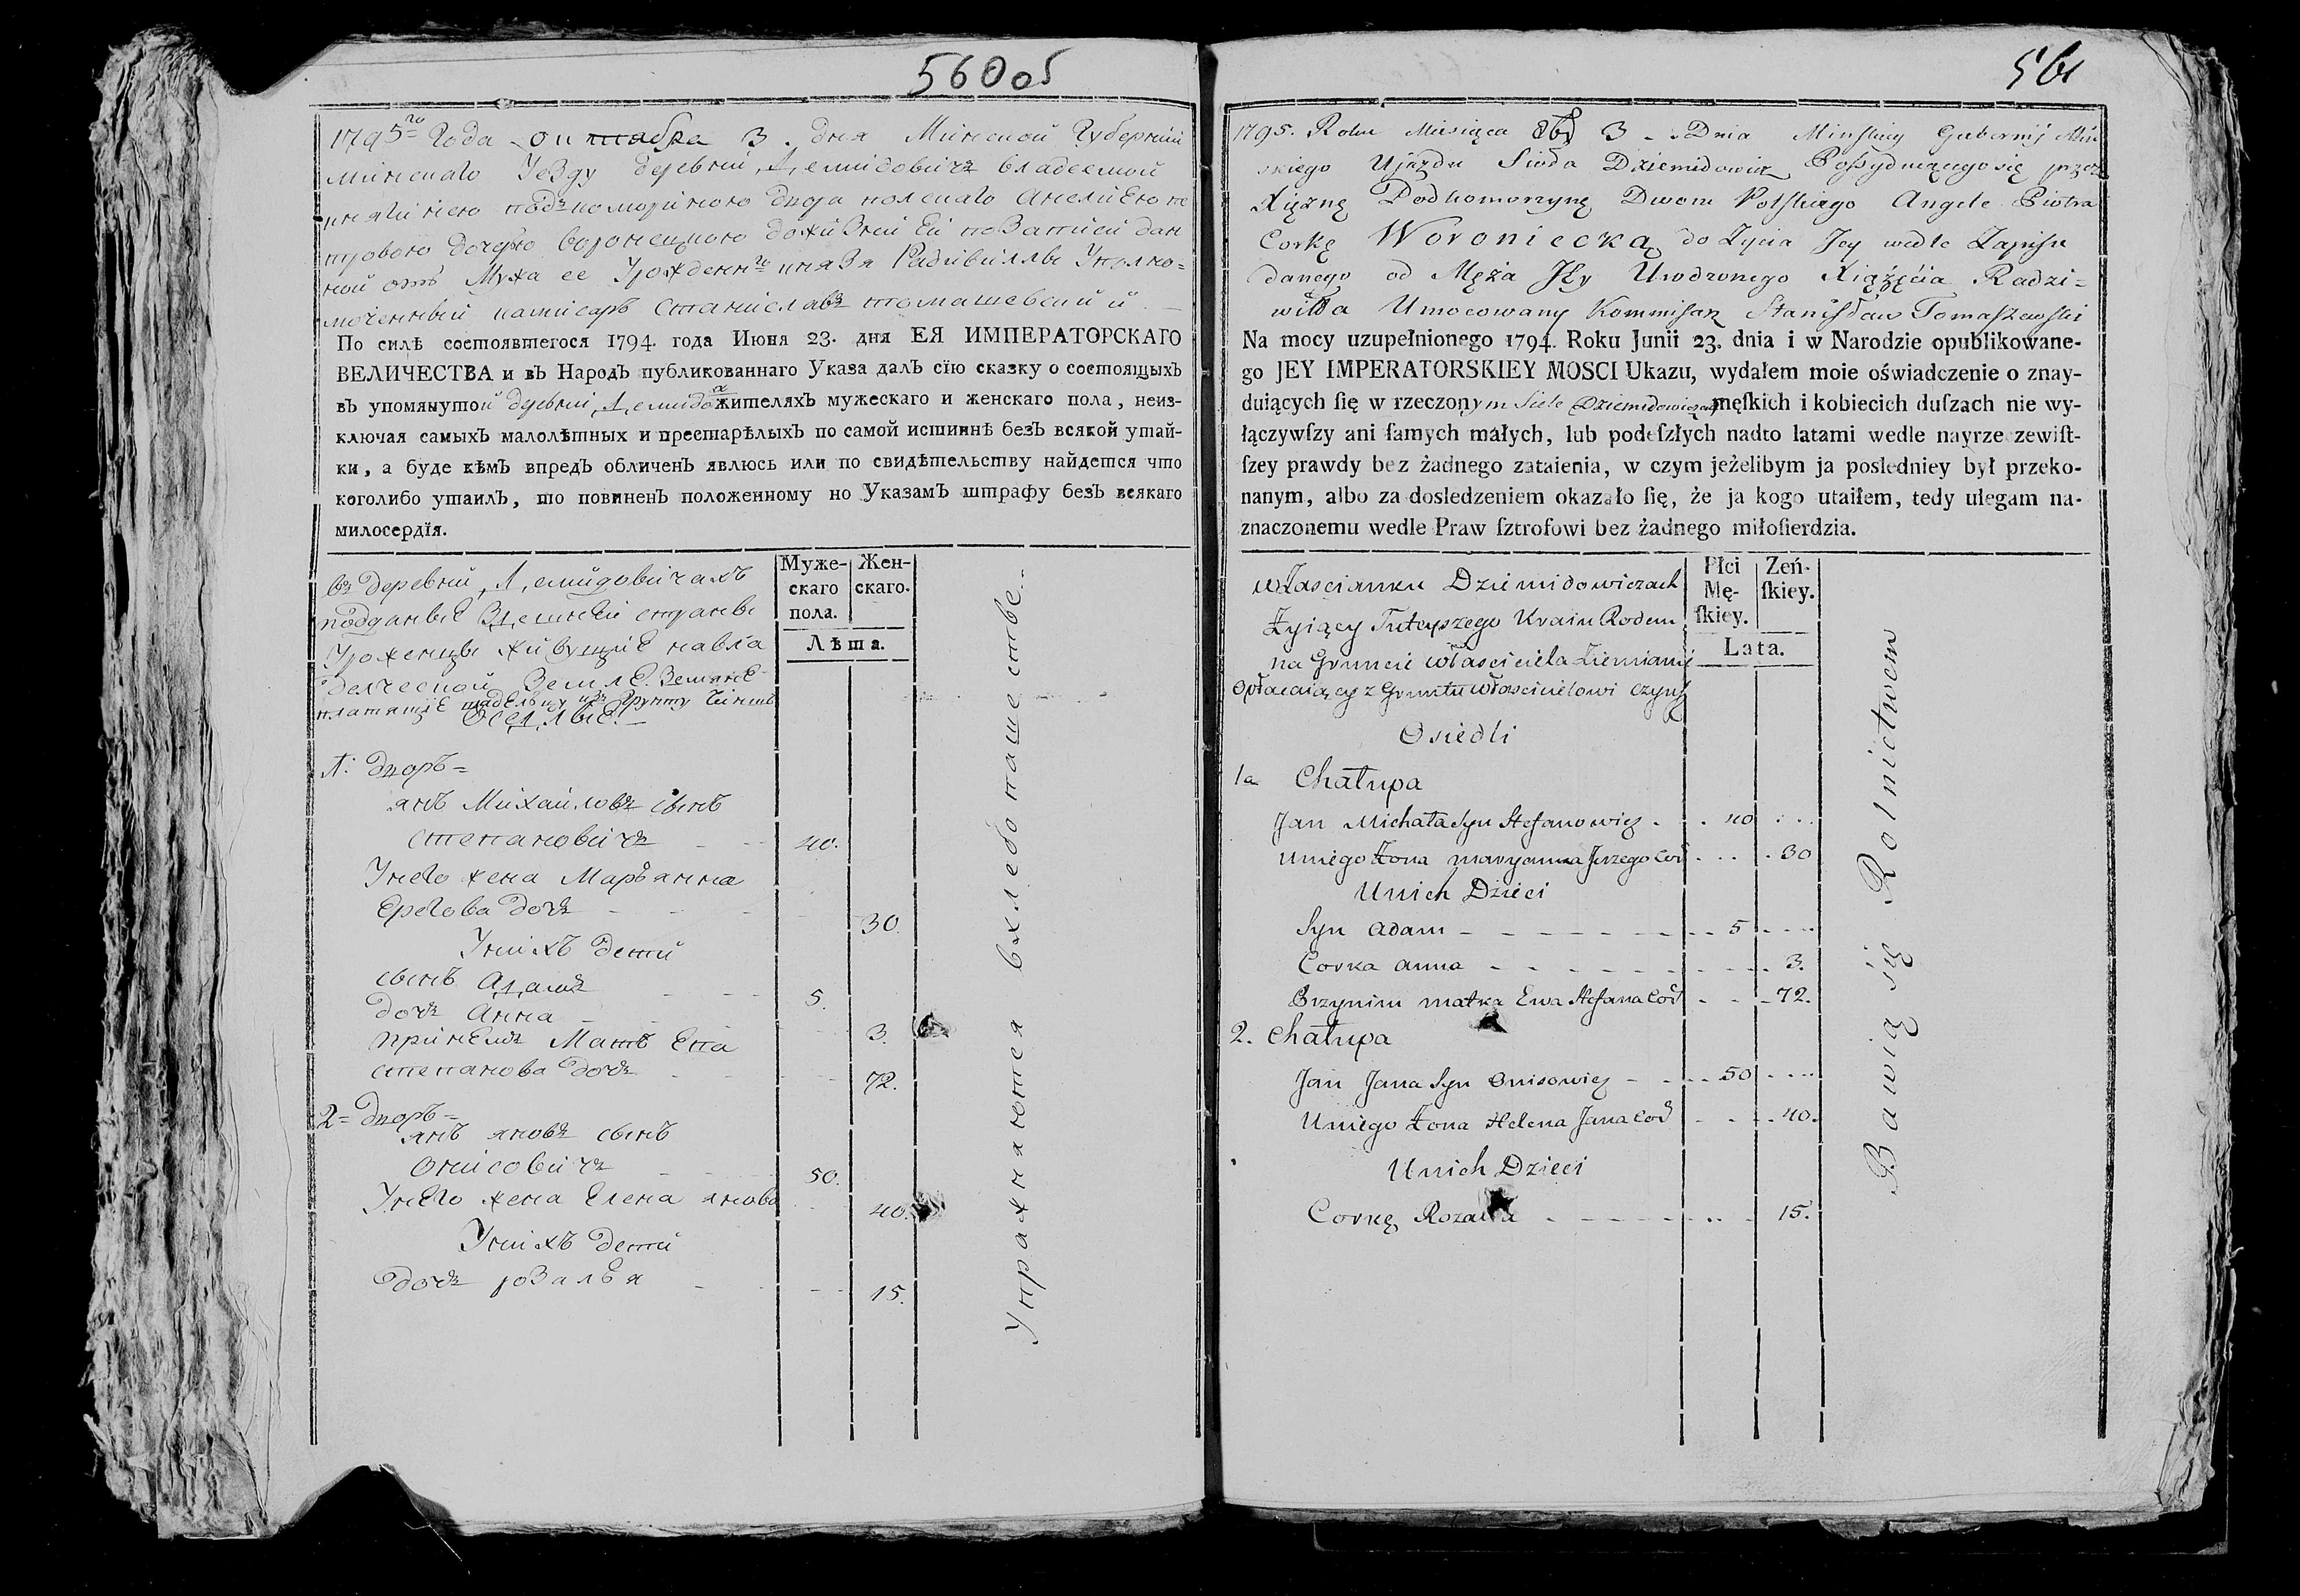 560об
1795го Года октабра 3. дня Минской Губернїи
минскаго Уезду деревни Демидовичъ владеемой
княгинею подъкомориною двора полскаго Анелиею пе
тровою дочерью воронецкою доживнеи Ей по Записи дан
ной отъ Мужа ее Урожденнго князя Радивилла Уполно=
моченный камисаръ Станиславъ томашевский
По силѣ состоявшегося 1794. года Июня 23. дня ЕЯ ИМПЕРАТОРСКАГО
ВЕЛИЧЕСТВА и въ Народъ публикованнаго Указа далъ сїю сказку о состоящыхъ
въ упомянутой деревни Демидо жителяхъ мужескаго и женскаго пола, неиз-
ключая самыхъ малолѣтныхъ и престарѣлыхъ по самой истиннѣ безъ всякой утай-
ки, а буде кѣмъ впредь обличенъ явлюсь или по свидѣтельству найдется что
коголибо утаилъ, то повиненъ положенному по Указамъ штрафу безъ всякаго
милосердїя.
въ деревни Демидовичахъ
подданые Здешней страны
Уроженцы живущие на вла
делческой Земле Земяне
платящие владельцу изъ Грунту Чиншъ
Оседлые.
Муже-
скаго
пола.
Жен-
скаго.
Лѣта.
1: дворъ=
янъ Михайловъ сынъ
степановичъ 40.
Унего жена Марьянна
Ерегова дочь 30.
Унихъ дети
сынъ Адамъ 5.
дочь Анна 3.
принемъ Мать Ева
степанова дочь 72.
2= дворъ=
янъ яновъ сынъ
Онисовичъ 50.
Унего жена Елена янова 40.
Унихъ дети
дочь розалья 15.
Упражняются вхлебопашестве.
561
1795. Roku Miesiąca 8br 3 Dnia Minskiey Gubernij Miń
skiego Ujazdu Sioła Dziemidowicz Possyduiącego się przez
Xiężnę Podkomorzynę Dworu Polskiego Angele Piotra
Corkę Woroniecką do Życia Jey wedle Zapisu
danego od Męża Jey Urodzonego Xiążęcia Radzi=
wiłła Umocowany Kommisarz Stanisław Tomaszewski
Na mocy uzupełnionego 1794. Roku Junii 23. dnia i w Narodzie opublikowane-
go JEY IMPERATORSKIEY MOSCI Ukazu, wydałem moie oświadczenie o znay-
duiących ſię w rzeczonym Siele Dziemidowiczach męſkich i kobiecich duſzach nie wy-
łączywſzy ani ſamych małych, lub podeſzłych nadto latami wedle nayrzezewiſt-
ſzey prawdy bez żadnego zataienia, w czym jeżelibym ja posledniey był przeko-
nanym, albo za dosledzeniem okazało ſię, że ja kogo utaiłem, tedy ulegam na-
znaczonemu wedle Praw ſztrofowi bez żadnego miłoſierdzia.
w Zascianku Dziemidowiczach
Żyiący Tuteyszego Kraiu Rodem
na Gruncie właściciela Ziemianie
Opłacaiący z Gruntu właścicielowi Czynsz
Osiedli
Płci
Mę-
ſkiey.
Zeń-
ſkiey.
Lata.
1a Chałupa
Jan Michała Syn Stefanowicz 40
Uniego Żona maryanna Jerzego Cor 30
Unich Dzieci
Syn Adam 5
Corka anna 3.
Przynim matka Ewa Stefana Cor 72.
2. Chałupa
Jan Jana Syn Onisowicz 50
Uniego Żona Helena Jana Cor 40.
Unich Dzieci
Corkę Rozalia 15.
Bawią się Rolnictwem